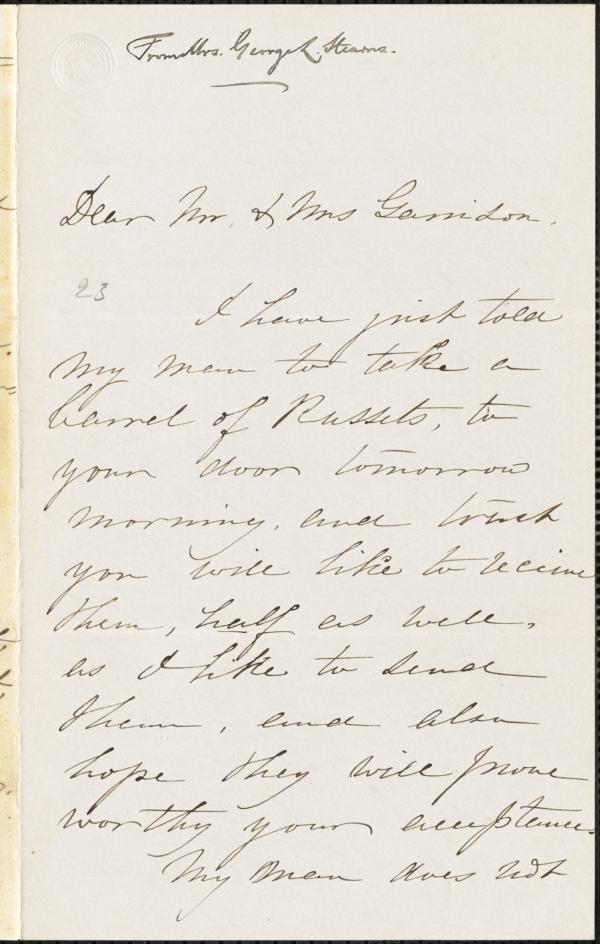 From Mrs. George L. Stearns.
Dear Mr. & Mrs Garrison.
23
I have just told
my man to take a
barrel of Russets, to
your door tomorrow
morning, and trust
you will like to receive
them, half as well,
as I like to send
them, and also
hope they will prove
worthy your acceptance.
My man does not